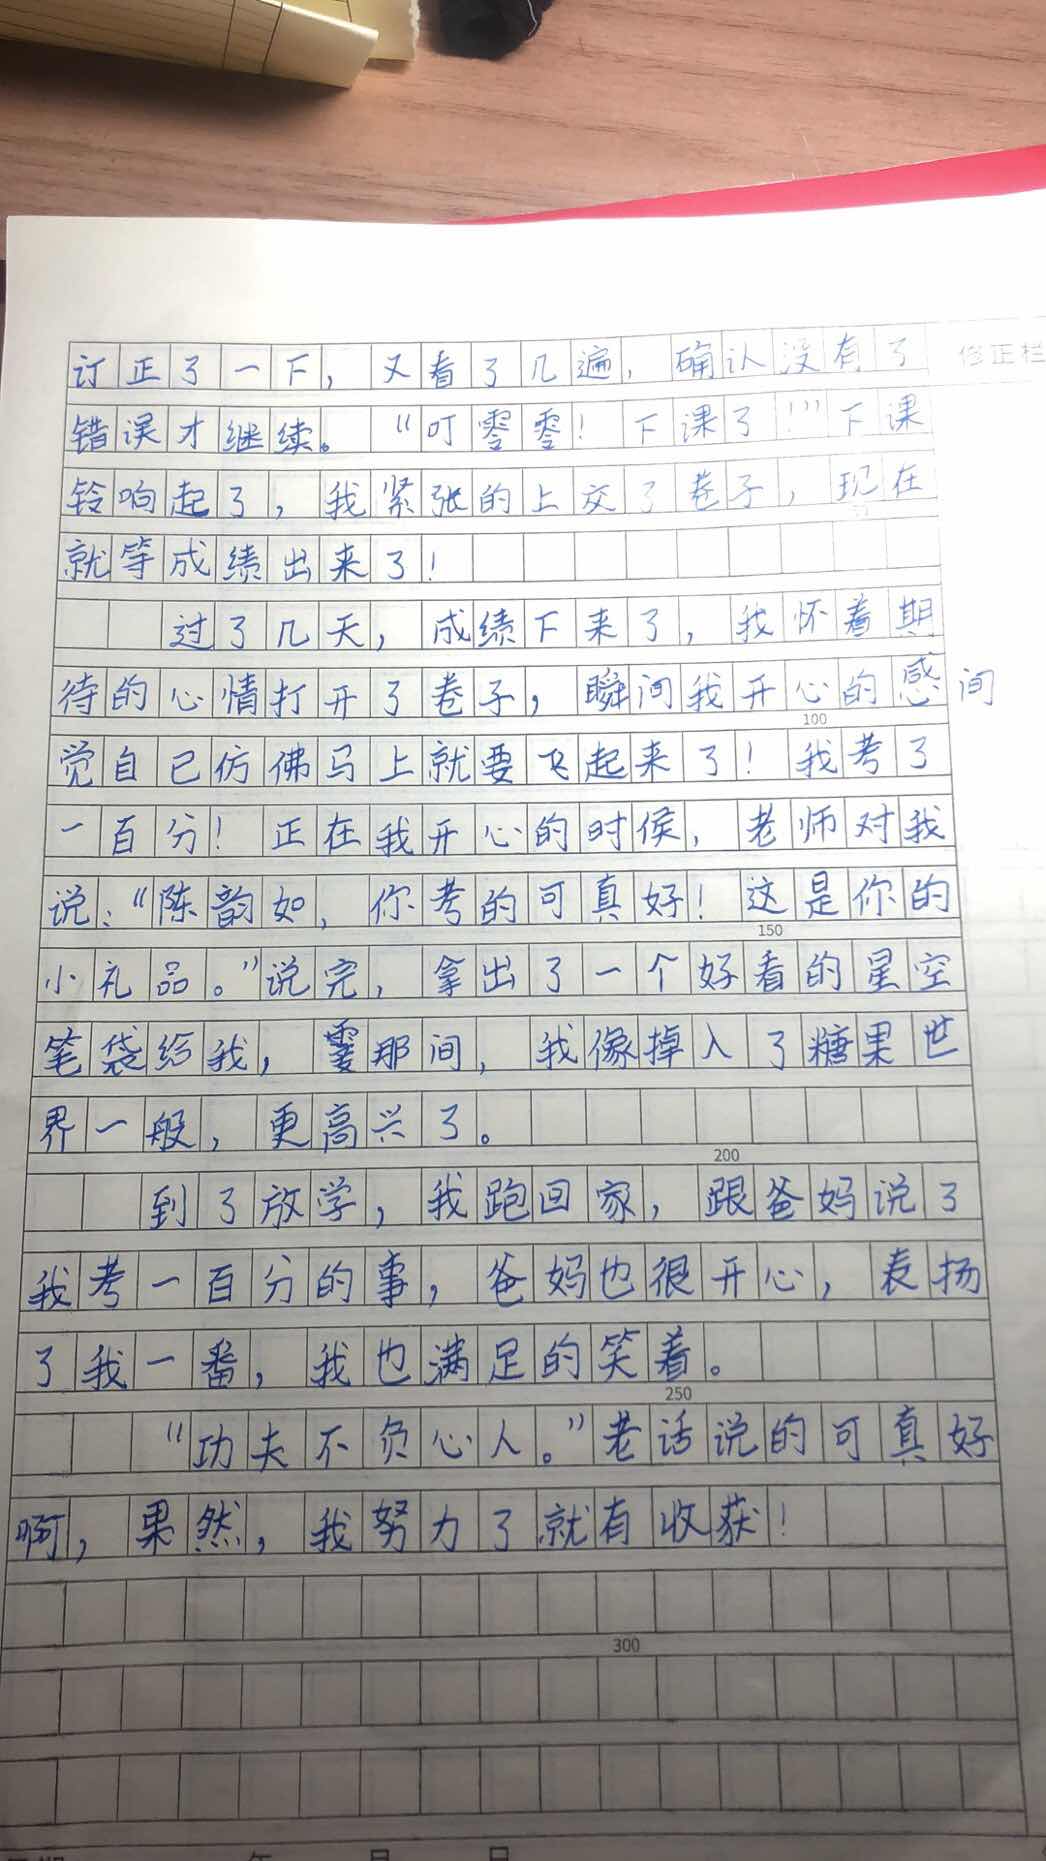 订正了一下，又看了几遍，确认没有了
修正栏
错误才继续。“叮零零！下课了！”下课
铃响起了，我紧张的上交了卷子，现在
就等成绩出来了！
过了几天，成绩下来了，我怀着期
待的心情打开了卷子，瞬间我开心的感
间
100
觉自己仿佛马上就要飞起来了！我考了
一百分！正在我开心的时侯，老师对我
说：“陈韵如，你考的可真好！这是你的
150
小礼品。”说完，拿出了一个好看的星空
笔袋给我，霎那间，我像掉入了糖果世
界一般，更高兴了。
200
到了放学，我跑回家，跟爸妈说了
我考一百分的事，爸妈也很开心，表扬
了我一番，我也满足的笑着。
250
“功夫不负心人。”老话说的可真好
啊，果然，我努力了就有收获！
300
年 月 日